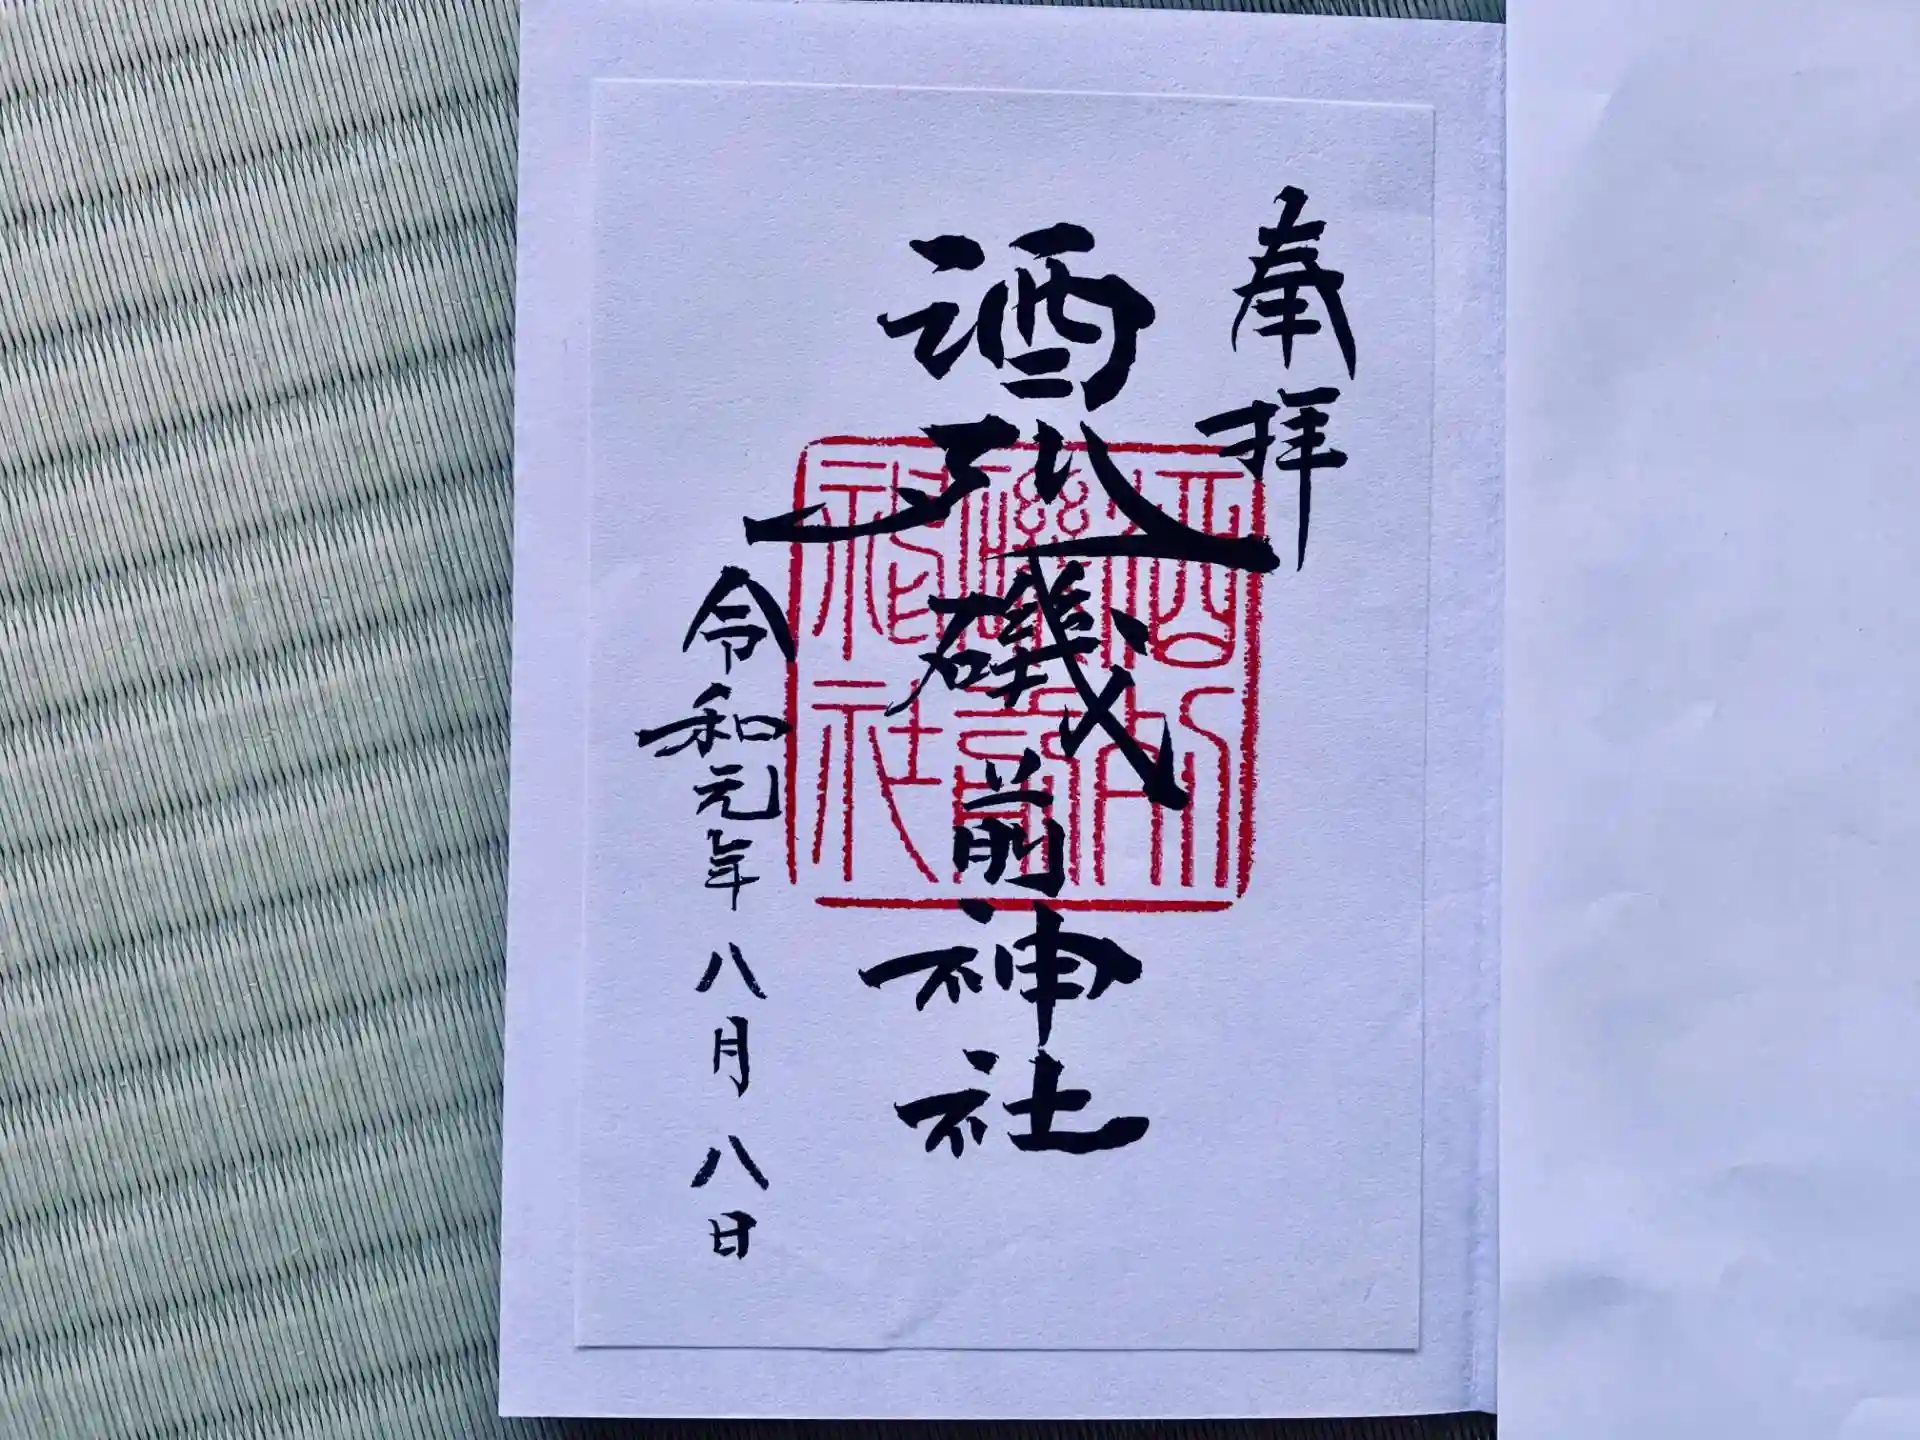 奉拝
酒列磯前神社
令和元年八月八日
磯前
神社